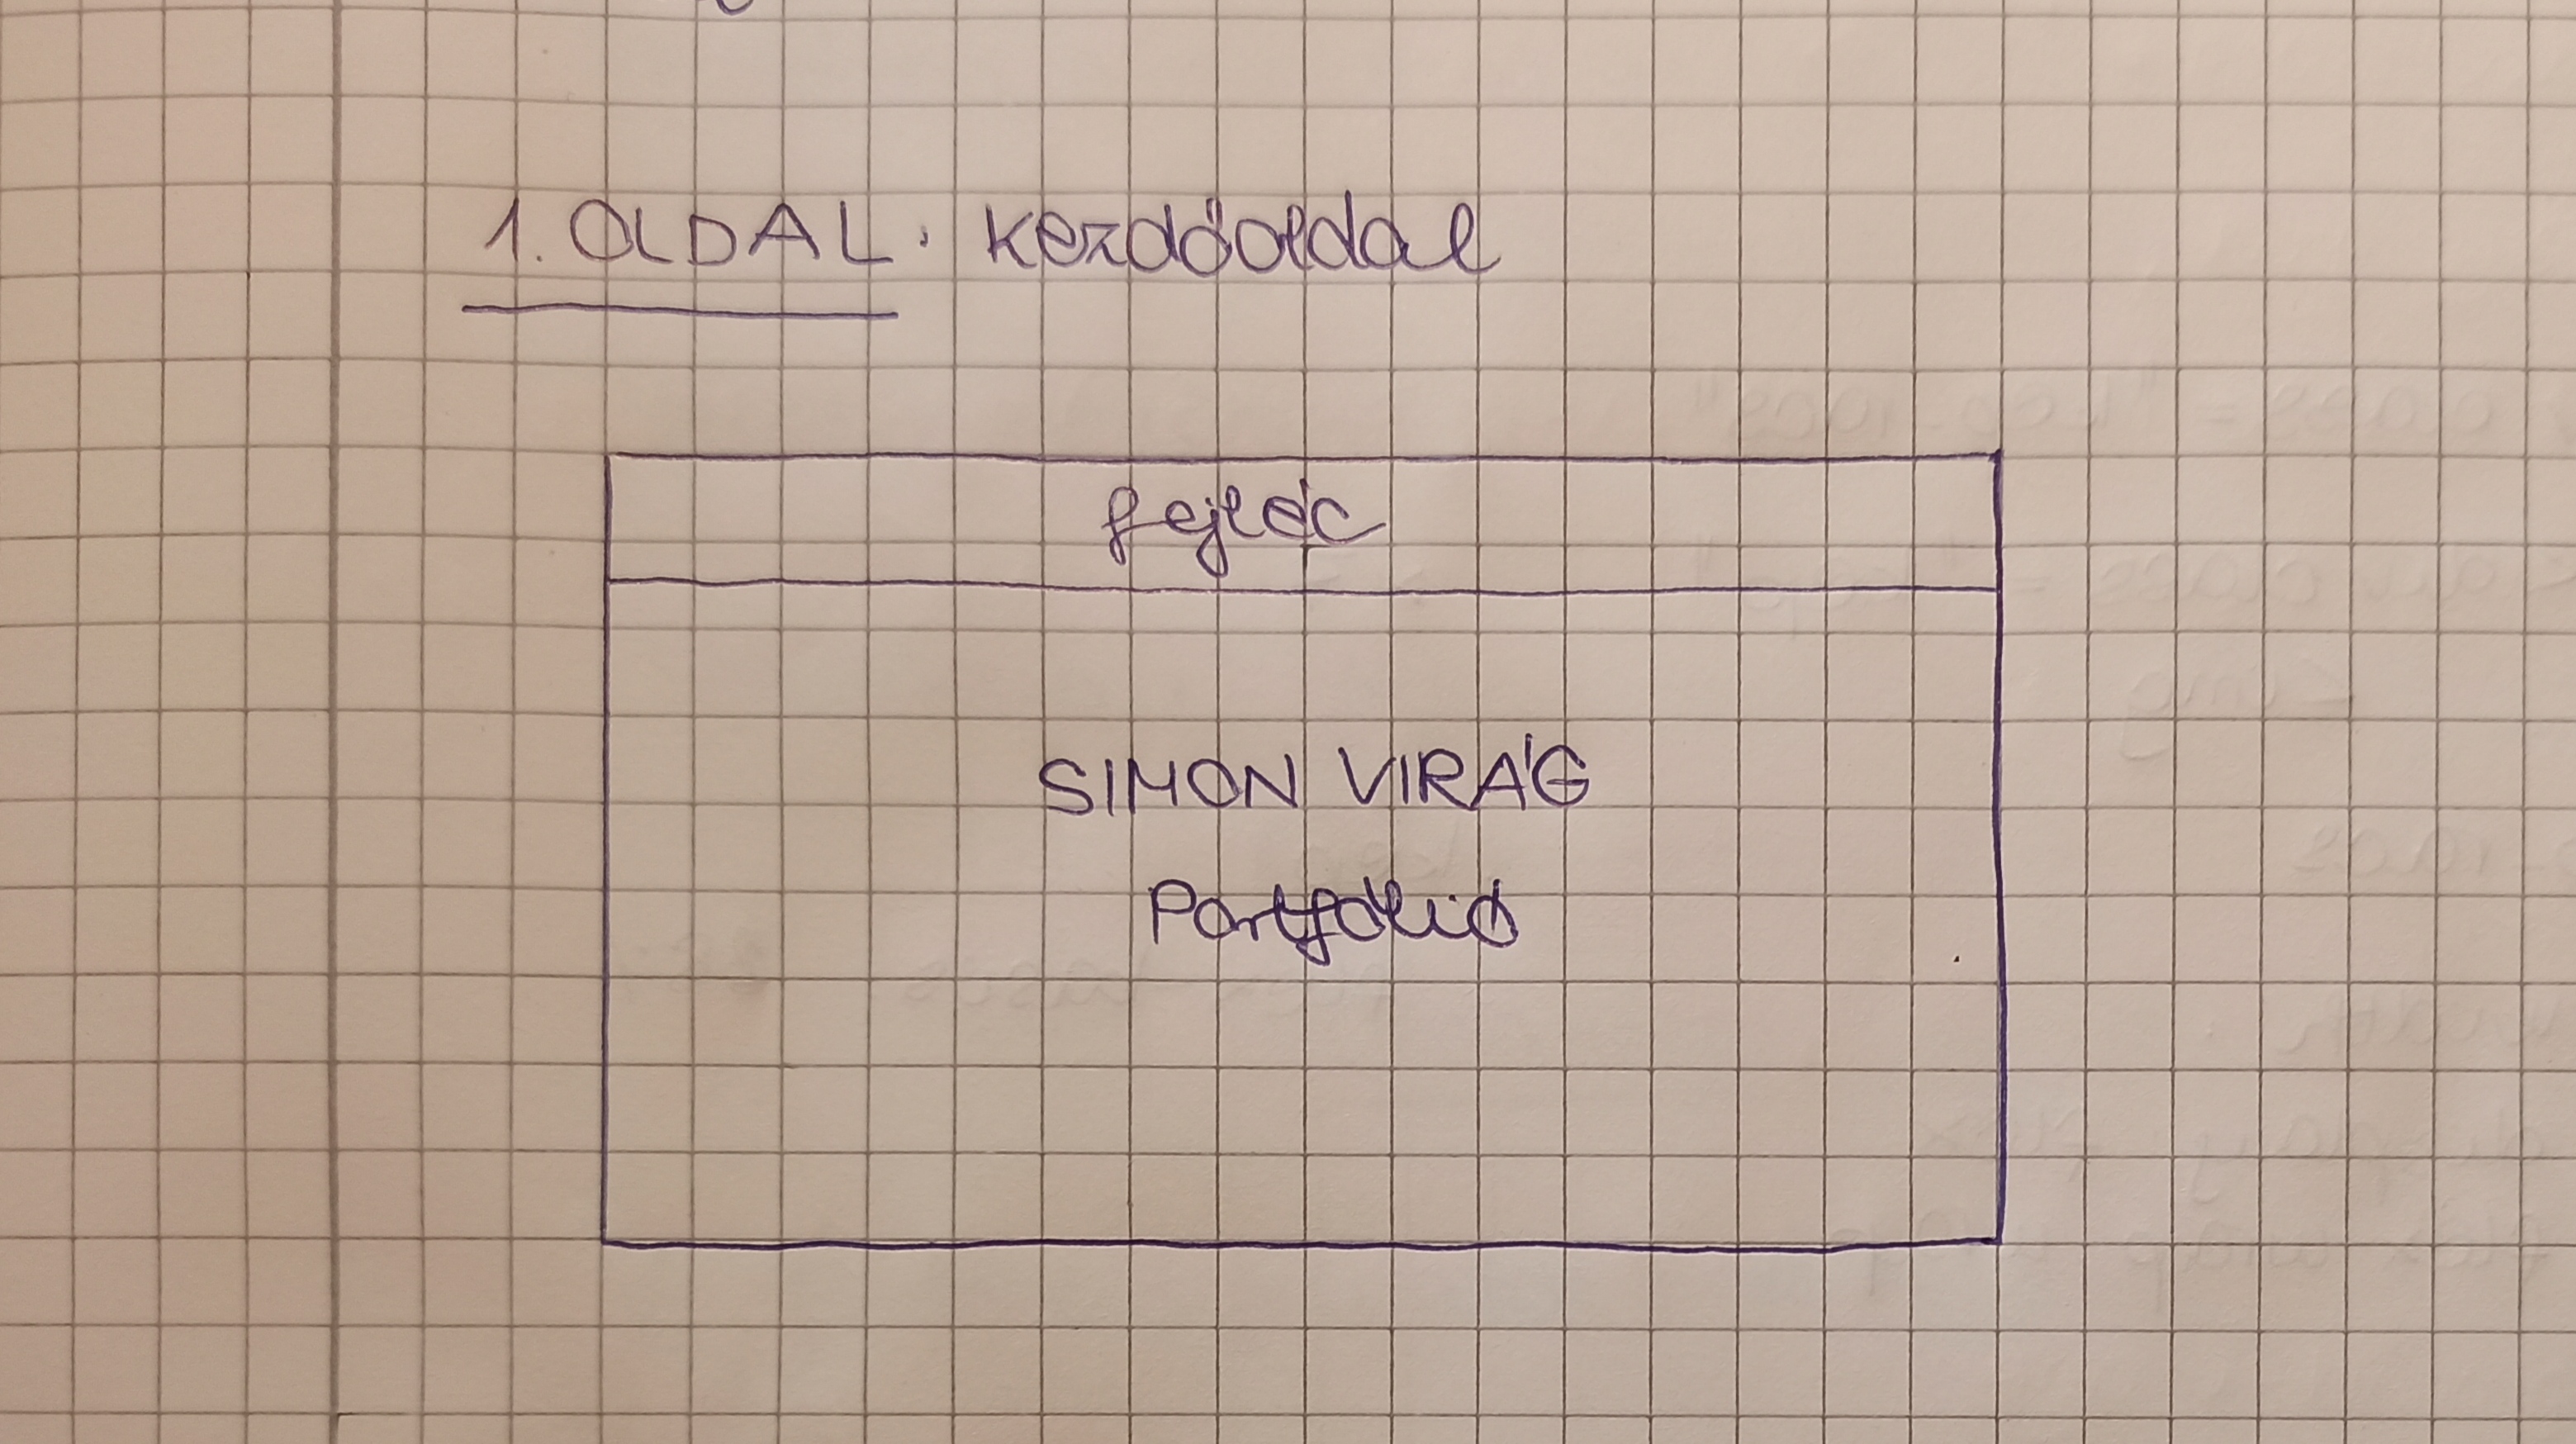 1. OLDAL: kezdőoldal
fejléc
SIMON VIRÁG
Portfólió